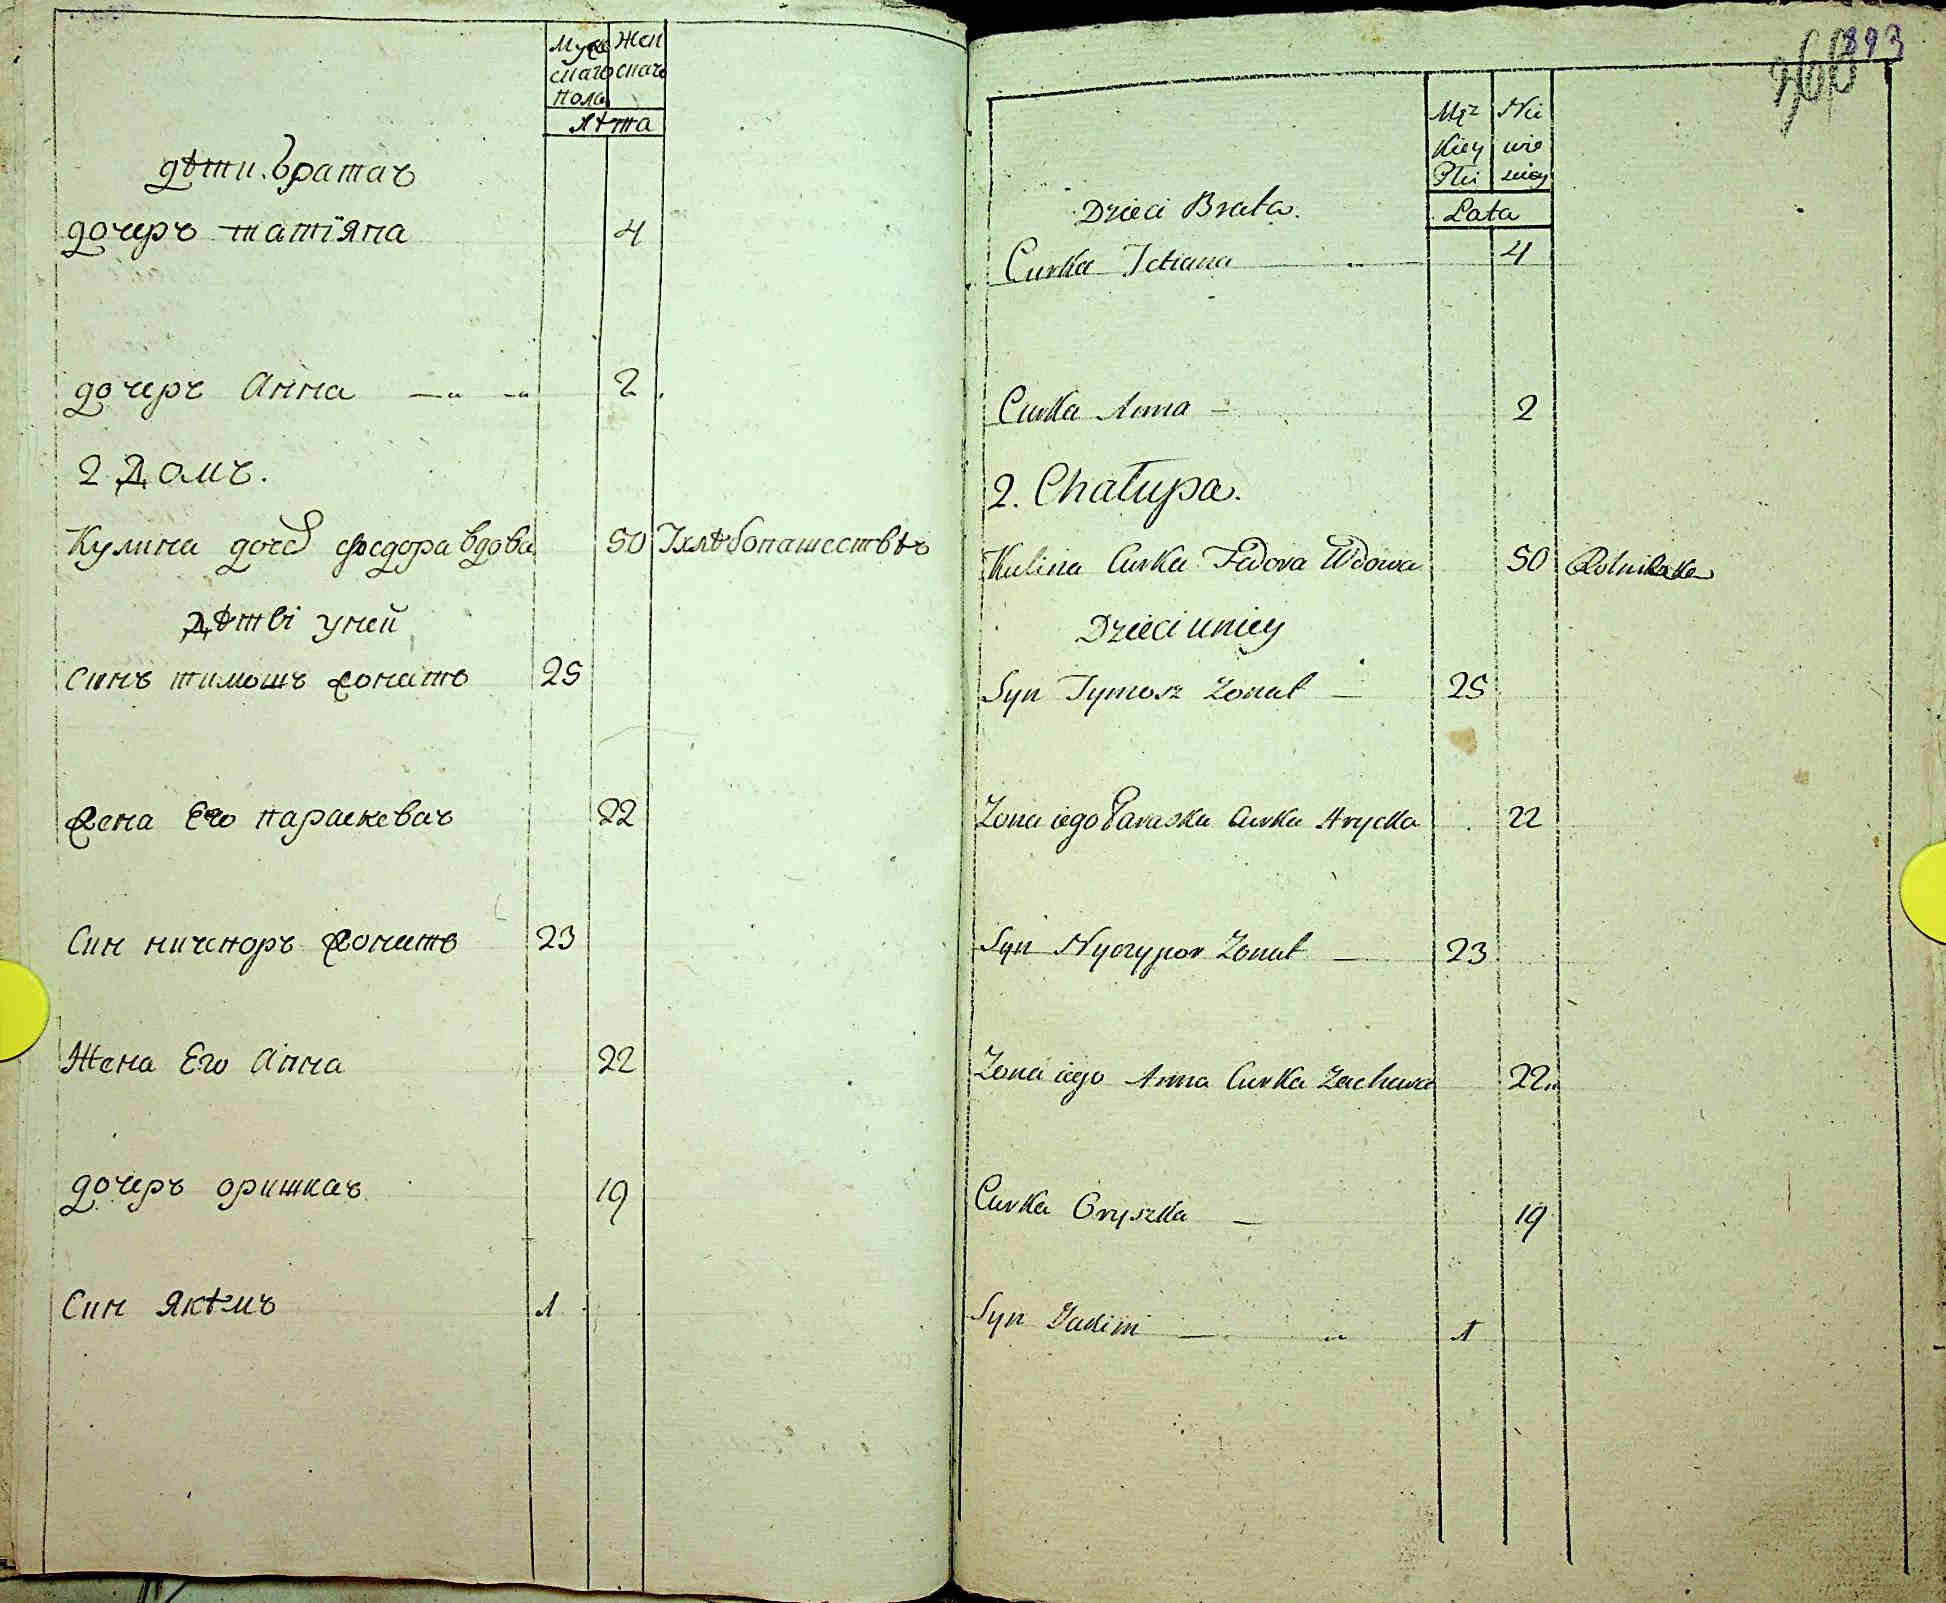 Муже Жен
скаго скаго
пола
Лѣта
дѣти братач
дочеръ татїяна 4
дочерь Анна 2
2 Домъ.
Кулина дочь федора вдова 50 Ӏхлѣбопашествѣъ
Дѣтві уней
Синъ тимошъ жонатъ 25
жена Его параскевач 22
Син ничепоръ жонатъ 23
Жена Его Анна 22
дочеръ оришкач 19
Син Якѣмъ 1
893
Męz Nie
kiey wie
Płci sciey
Lata
Dzieci Brata.
Curka Tetiana 4
Curka Anna 2
2. Chałupa.
Kulina Curka Fedora Wdowa 50
Dzieci uniey
Syn Tymosz Zonat 25
Zona iego Paraska Curka Hrycka 22
Syn Nyczypor Zonat 23
Zona iego Anna Curka Zachara 22
Curka Oryszka 19
Syn Jakim 1